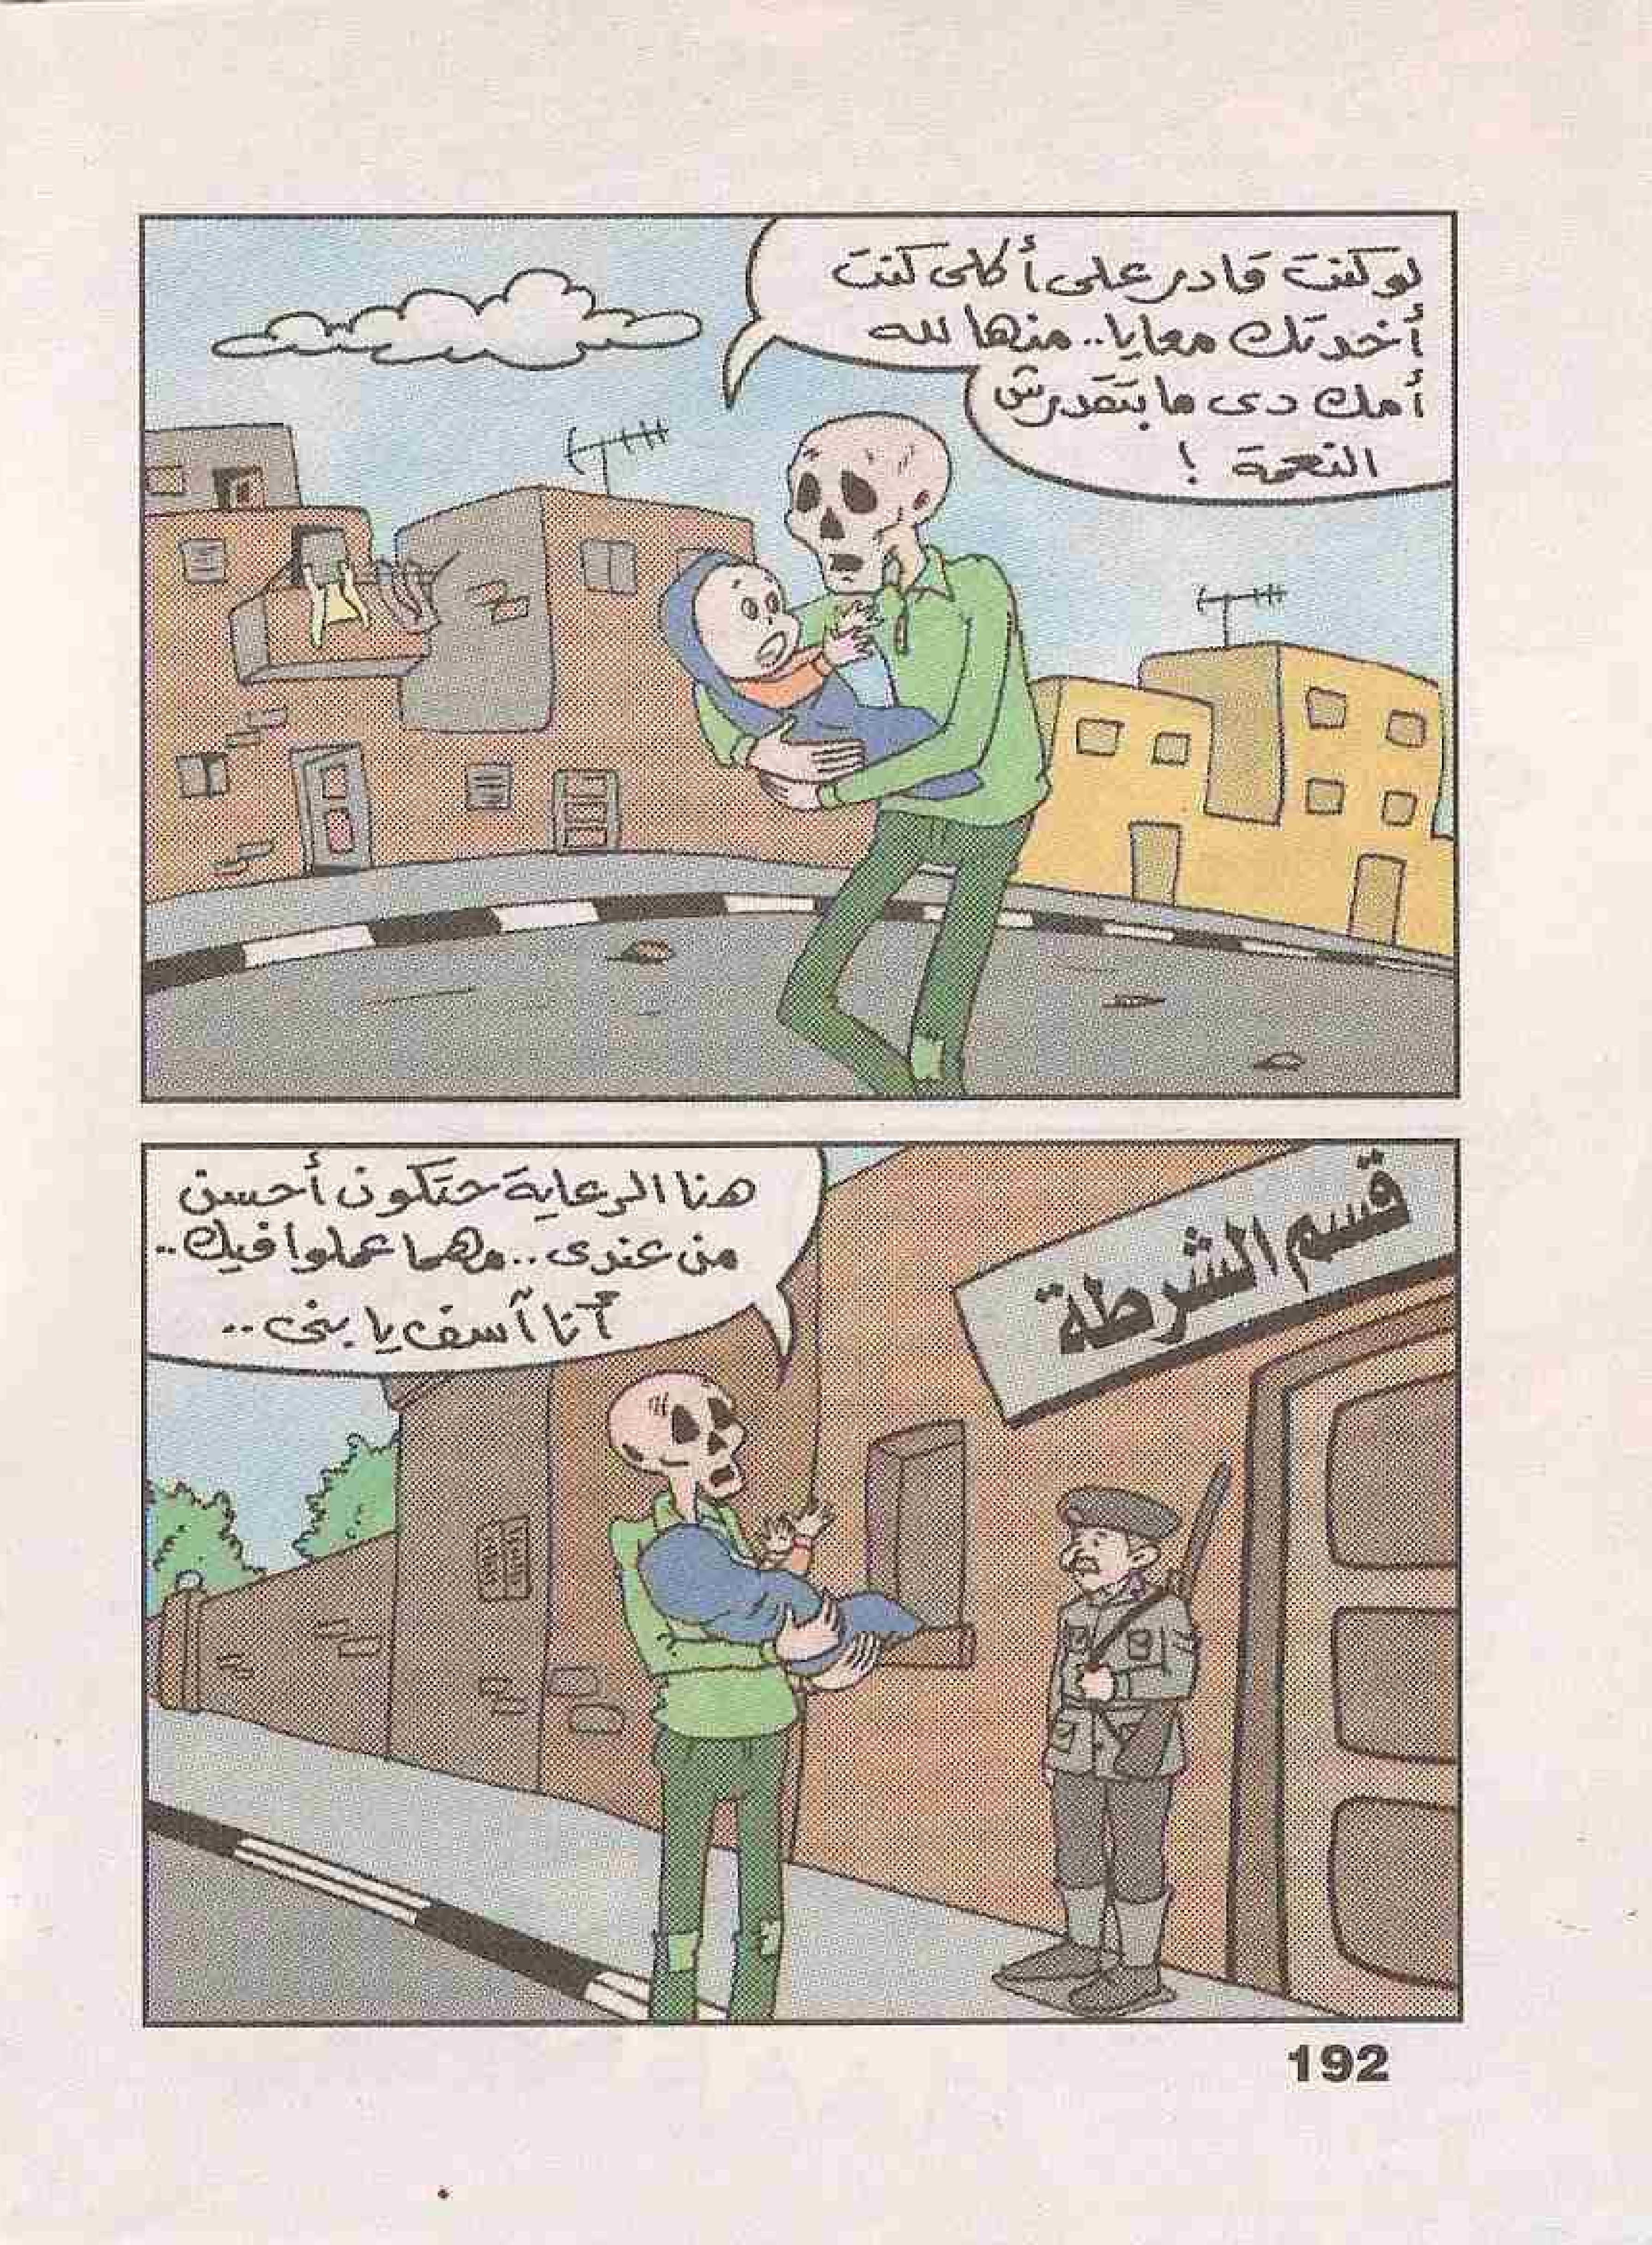 لو كنت قادر على أكلى كنت
أخدتك معايا.. منها لله
أمك دى ما بتقدرش
النعمة !
هنا الرعاية حتكون أحسن
من عندى.. مهما عملوا فيك..
أنا آسف يا بنى..
قسم الشرطة
192